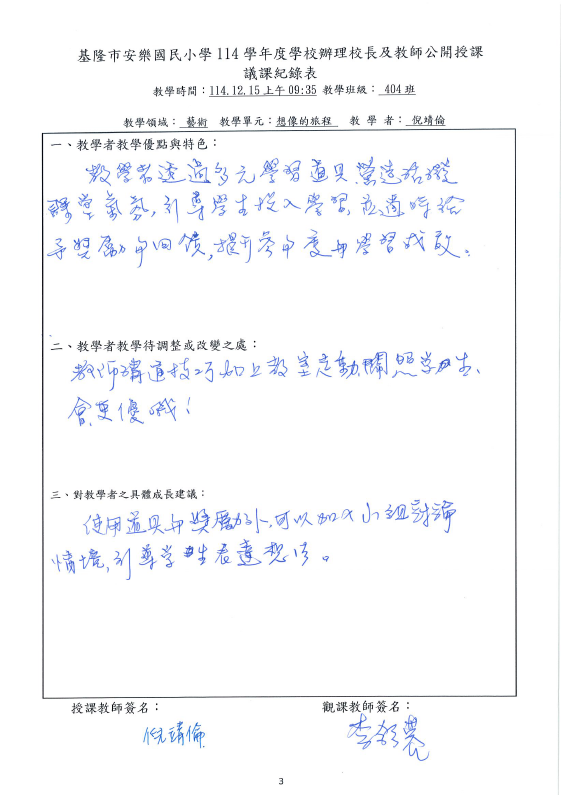 基隆市安樂國民小學 114 學年度學校辦理校長及教師公開授課
議課紀錄表
教學時間：114.12.15上午 09:35 教學班級： 404 班
教學領域： 藝術 教學單元：想像的旅程 教 學 者： 倪靖倫
一、教學者教學優點與特色：
教學者透過多元學習道具,營造活潑
課堂氣氛,引導學生投入學習,並適時給
予獎勵與回饋,提升參與度與學習成效。
二、教學者教學待調整或改變之處：
教師講道技巧如上教室走動,關照学生、
會更優哦!
三、對教學者之具體成長建議：
使用道具與獎勵外,可以加入小組討論
情境,引導学生表達想法。
授課教師簽名：
觀課教師簽名：
倪靖倫
3